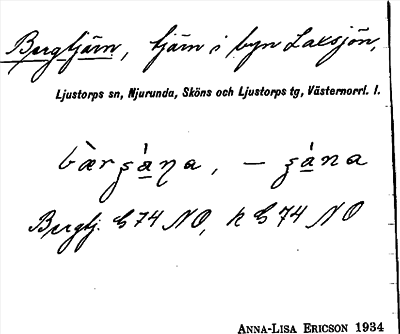 Bergtjärn, tjärn i byn Laxsjön,
Ljustorps sn, Njurunda, Sköns och Ljustorps tg, Västernorrl. l.
bær̀ʂàṇa, – ʂàna
Bergtj. G 74 NO, k G 74 NO
ANNA-LISA ERICSON 1934